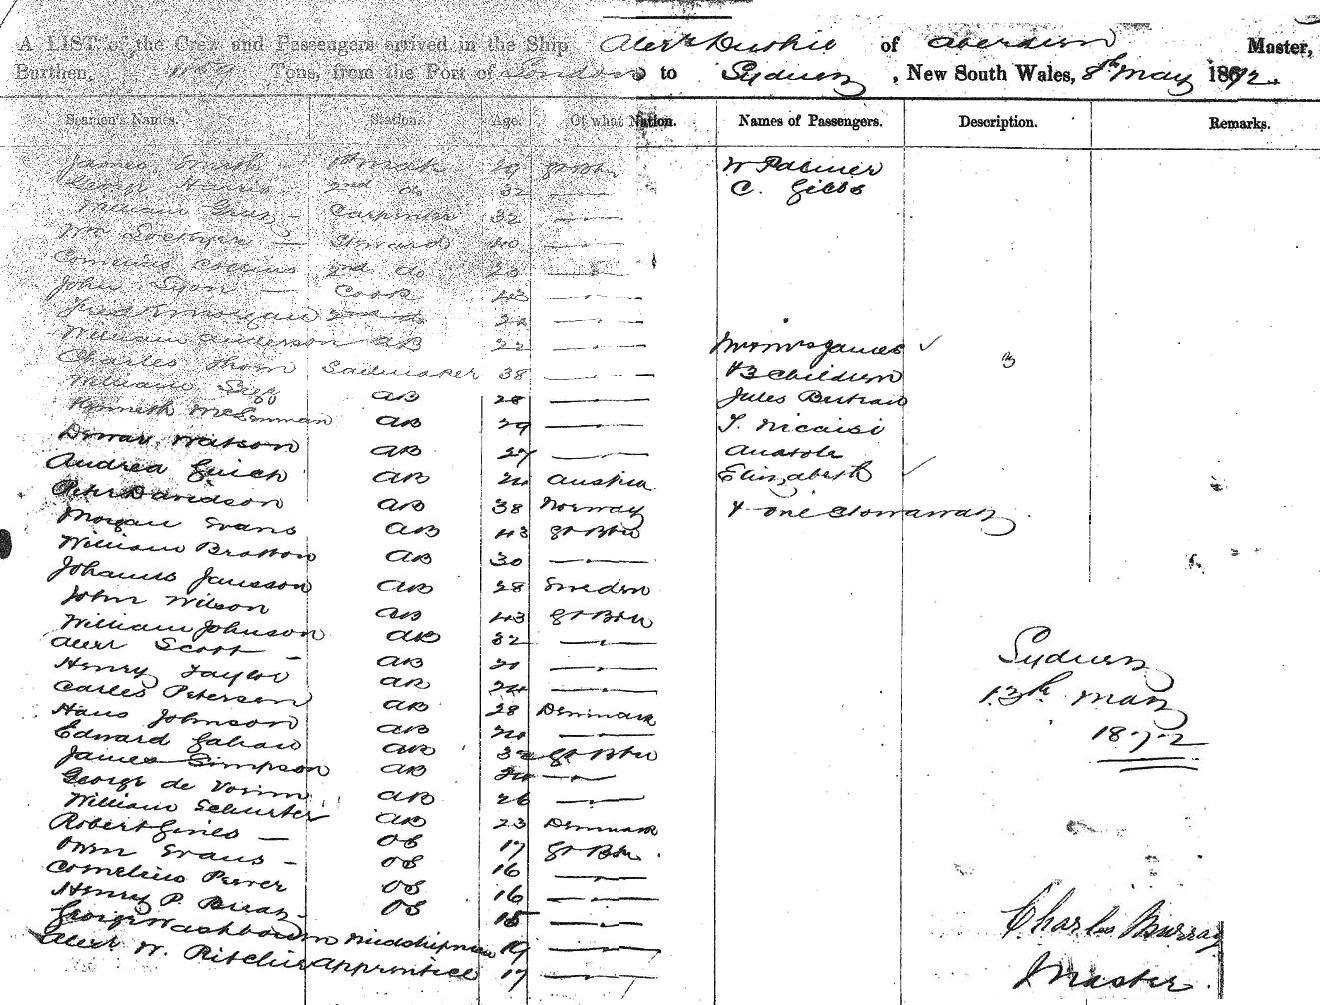 A LIST of the Crew and Passengers arrived in the Ship of Aberdeen Master,
Burthen, Tons, from the Port of London to Sydney, New South Wales, 8th May 1872.
Seamen's Names. Station. Age. Of what Nation. Names of Passengers. Description. Remarks.
James Smith 1st Mate 29 Gt Btn W Palmer
George Harris 2nd do 32 C. Gibbs
William Gray Carpenter 32
Wm Steward 40
Cornelius Collins 2nd do
John Lyon Cook 43
Fredk Morgan 2nd do
William Anderson AB 22 Mr & Mrs James
Charles Thom Sailmaker 38 & 3 Children
William AB 28 Jules Bertrau
Kenneth McLennan AB 29 T. Nicaisi
Watson AB 27 Anatole
Andrea AB Austria Elizabeth
Peter Davidson AB 38 Norway & one Stowaway
Morgan Evans AB 43 Gt Btn
William Bratton AB 30
Johannes Jansson AB 28 Sweden
John Wilson AB 43 Gt Btn
William Johnson AB 32
Alexr Scott AB 21
Henry Taylor AB 24
Carles Peterson AB 28 Denmark
Hans Johnson AB
Edward AB Gt Btn
James Simpson AB
George de AB 26
William Schurter AB 23 Denmark
Robert OS 17 Gt Btn
Owen Evans OS 16
Cornelius OS 16
Henry P. OS
George Washbourn Midshipman 19
Alexr W. Ritchie Apprentice 17
Sydney
13th May
1872
Charles Murray
Master